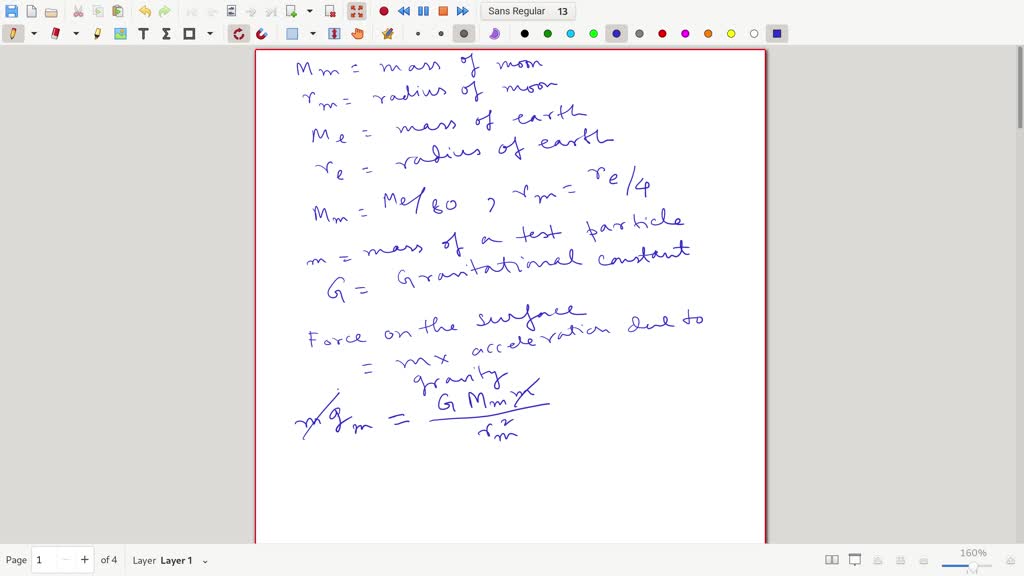 Sans Regular 13
M_m = mass of moon
r_m = radius of moon
M_e = mass of earth
r_e = radius of earth
M_m = M_e/80 , r_m = r_e/4
m = mass of a test particle
G = Gravitational constant
Force on the surface
= m x acceleration due to
gravity
m g_m = G M_m m / r_m^2
Page 1 of 4 Layer Layer 1 160%